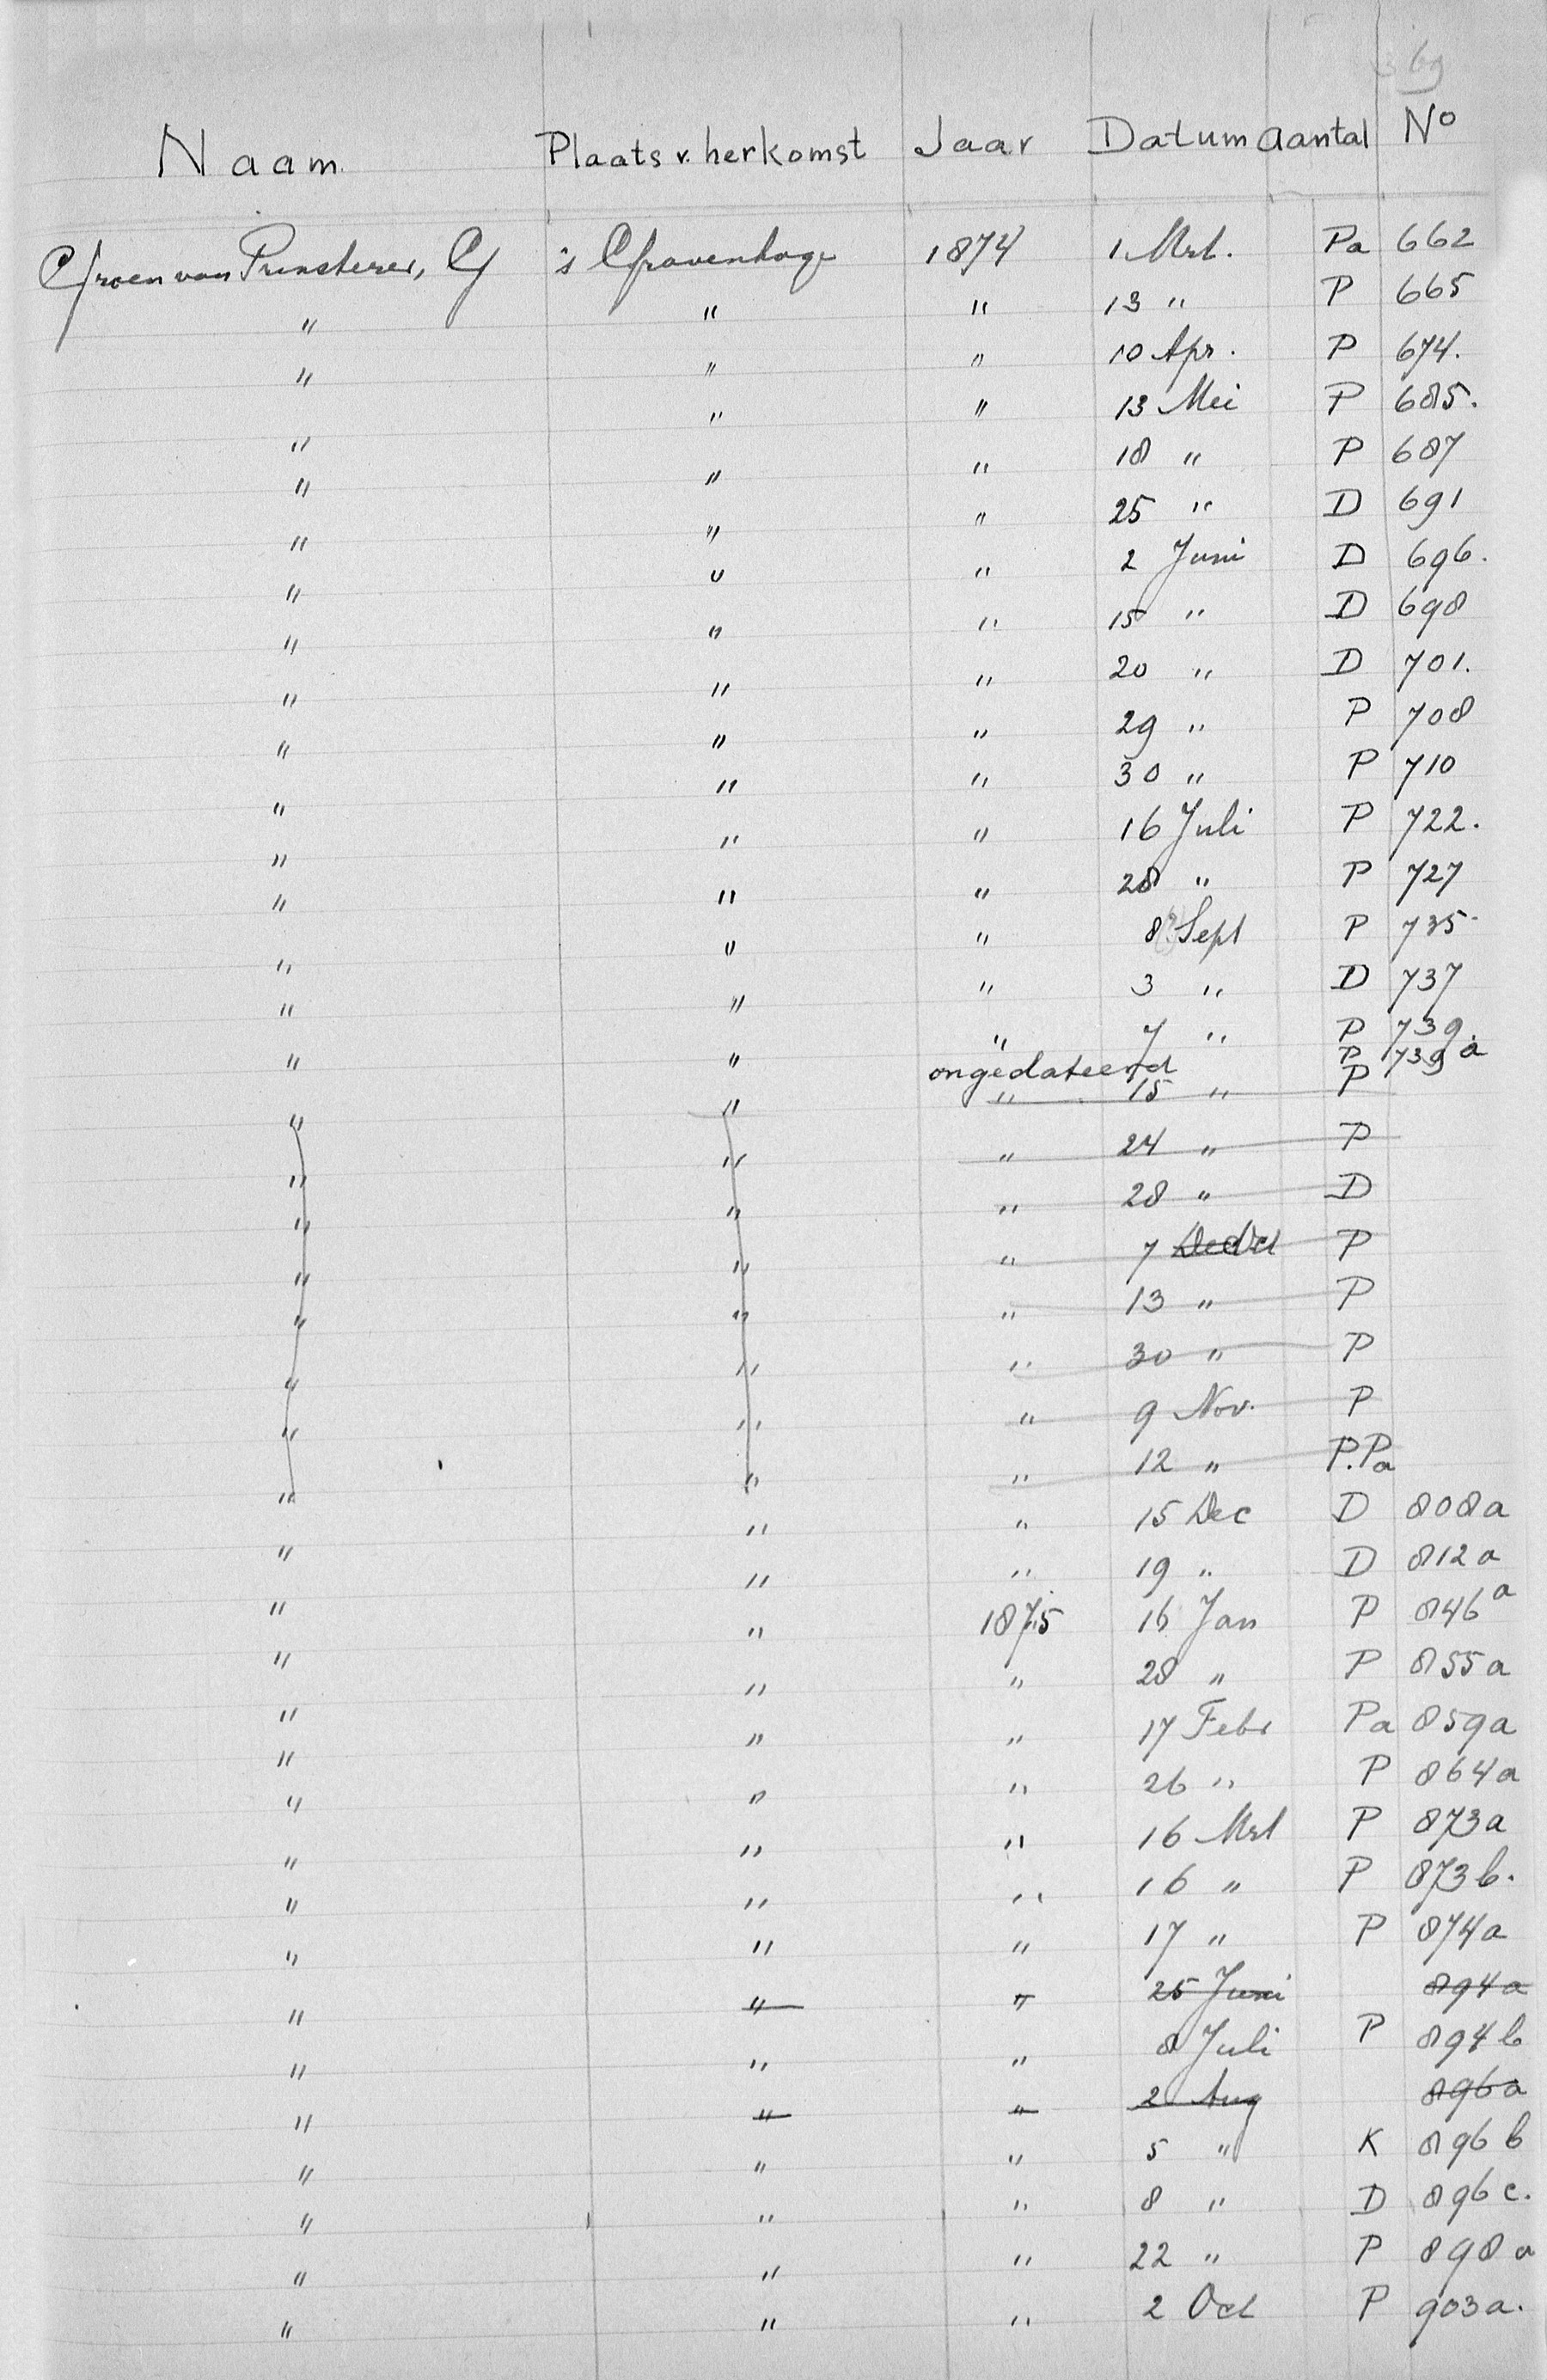 69
Naam. Plaats v. herkomst Jaar Datum aantal No
Groen van Prinsterer, G 's Gravenhage 1874 1 Mrt. Pa 662
" " " 13 " P 665
" " " 10 Apr. P 674.
" " " 13 Mei P 685.
" " " 18 " P 687
" " " 25 " D 691
" " " 2 Juni D 696.
" " " 15 " D 698
" " " 20 " D 701.
" " " 29 " P 708
" " " 30 " P 710
" " " 16 Juli P 722.
" " " 28 " P 727
" " " 8 Sept P 735
" " " 3 " D 737
" " " 7 " P 739.
ongedateerd P 739a
" " " 15 " P
" " " 24 " P
" " " 28 " D
" " " 7 Dec Oct P
" " " 13 " P
" " " 30 " P
" " " 9 Nov. P
" " " 12 " P.Pa
" " " 15 Dec D 808a
" " " 19 " D 812a
" " 1875 16 Jan P 846a
" " " 28 " P 855a
" " " 17 Febr Pa 859a
" " " 26 " P 864a
" " " 16 Mrt P 873a
" " " 16 " P 873b.
" " " 17 " P 874a
" " " 25 Juni 894a
" " " 8 Juli P 894b
" " " 2 Aug 896a
" " " 5 " K 896b
" " " 8 " D 896c.
" " " 22 " P 898a
" " " 2 Oct P 903a.